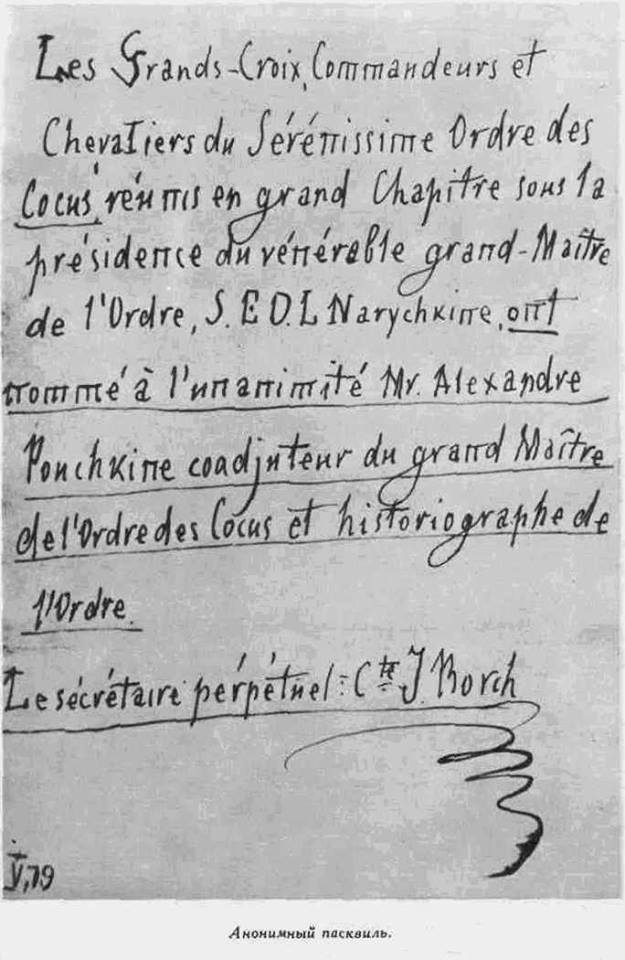 Les Grands-Croix, Commandeurs et
Chevaliers du Sérénissime Ordre des
Cocus, réunis en grand Chapitre sous la
présidence du vénérable grand-Maître
de l'Ordre, S. E. D. L Narychkine, ont
nommé à l'unanimité Mr. Alexandre
Pouchkine coadjuteur du grand Maître
de l'Ordre des Cocus et historiographe de
l'Ordre.
Le sécrétaire perpétuel: Cte J. Borch
V,79
Анонимный пасквиль.